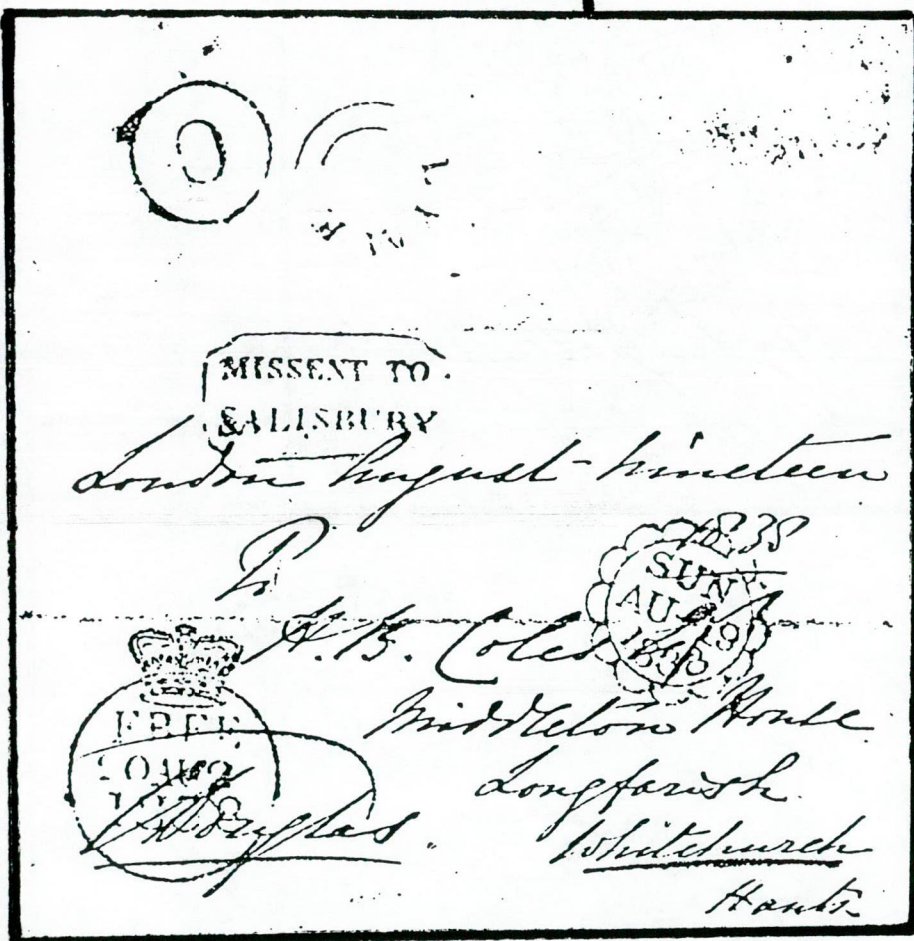 O
MISSENT TO
SALISBURY
London August nineteen
1838
SUNY.
AU 19
1838
H. B. Coles
Middleton House
Longparish
Whitchurch
Hants
FREE
20 AU
Douglas